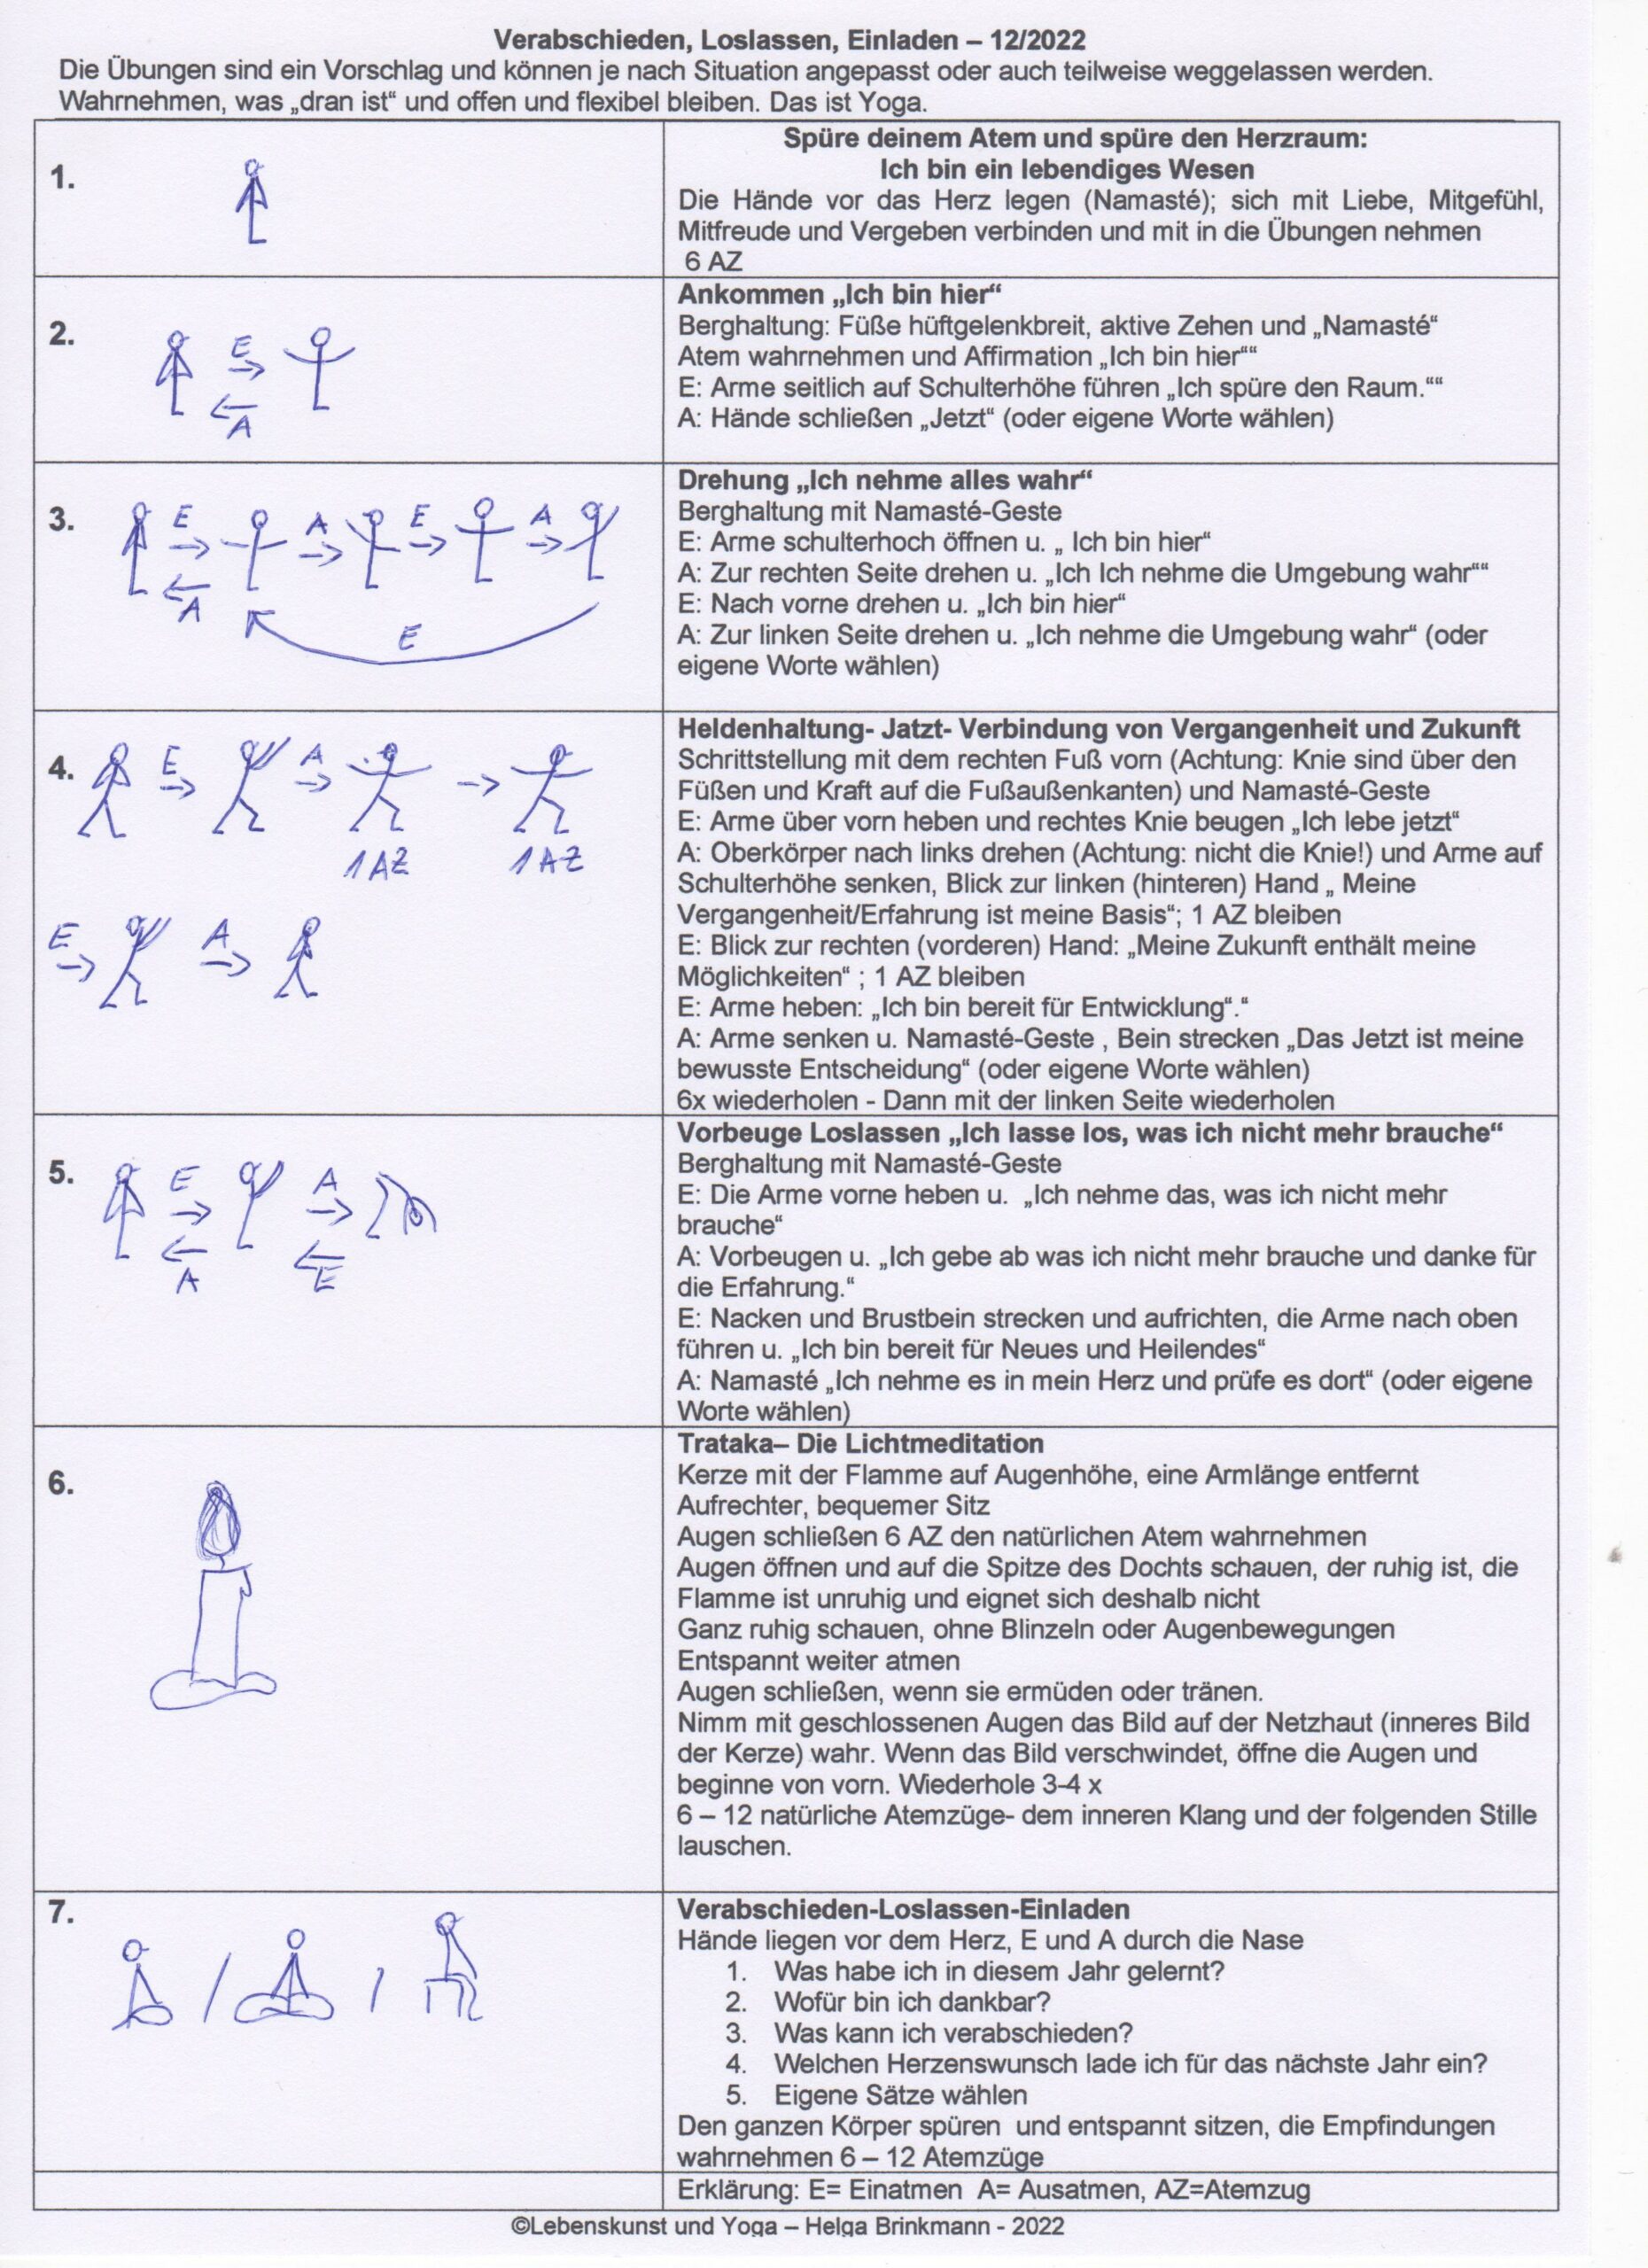 Verabschieden, Loslassen, Einladen – 12/2022
Die Übungen sind ein Vorschlag und können je nach Situation angepasst oder auch teilweise weggelassen werden.
Wahrnehmen, was „dran ist“ und offen und flexibel bleiben. Das ist Yoga.
1.
Spüre deinem Atem und spüre den Herzraum:
Ich bin ein lebendiges Wesen
Die Hände vor das Herz legen (Namasté); sich mit Liebe, Mitgefühl,
Mitfreude und Vergeben verbinden und mit in die Übungen nehmen
6 AZ
2.
E
A
Ankommen „Ich bin hier“
Berghaltung: Füße hüftgelenkbreit, aktive Zehen und „Namasté“
Atem wahrnehmen und Affirmation „Ich bin hier““
E: Arme seitlich auf Schulterhöhe führen „Ich spüre den Raum.““
A: Hände schließen „Jetzt“ (oder eigene Worte wählen)
3.
E A E A
A
E
Drehung „Ich nehme alles wahr“
Berghaltung mit Namasté-Geste
E: Arme schulterhoch öffnen u. „ Ich bin hier“
A: Zur rechten Seite drehen u. „Ich Ich nehme die Umgebung wahr““
E: Nach vorne drehen u. „Ich bin hier“
A: Zur linken Seite drehen u. „Ich nehme die Umgebung wahr“ (oder
eigene Worte wählen)
4.
E A
1AZ 1AZ
E A
Heldenhaltung- Jatzt- Verbindung von Vergangenheit und Zukunft
Schrittstellung mit dem rechten Fuß vorn (Achtung: Knie sind über den
Füßen und Kraft auf die Fußaußenkanten) und Namasté-Geste
E: Arme über vorn heben und rechtes Knie beugen „Ich lebe jetzt“
A: Oberkörper nach links drehen (Achtung: nicht die Knie!) und Arme auf
Schulterhöhe senken, Blick zur linken (hinteren) Hand „ Meine
Vergangenheit/Erfahrung ist meine Basis“; 1 AZ bleiben
E: Blick zur rechten (vorderen) Hand: „Meine Zukunft enthält meine
Möglichkeiten“ ; 1 AZ bleiben
E: Arme heben: „Ich bin bereit für Entwicklung“.“
A: Arme senken u. Namasté-Geste , Bein strecken „Das Jetzt ist meine
bewusste Entscheidung“ (oder eigene Worte wählen)
6x wiederholen - Dann mit der linken Seite wiederholen
5.
E A
A E
Vorbeuge Loslassen „Ich lasse los, was ich nicht mehr brauche“
Berghaltung mit Namasté-Geste
E: Die Arme vorne heben u. „Ich nehme das, was ich nicht mehr
brauche“
A: Vorbeugen u. „Ich gebe ab was ich nicht mehr brauche und danke für
die Erfahrung.“
E: Nacken und Brustbein strecken und aufrichten, die Arme nach oben
führen u. „Ich bin bereit für Neues und Heilendes“
A: Namasté „Ich nehme es in mein Herz und prüfe es dort“ (oder eigene
Worte wählen)
6.
Trataka– Die Lichtmeditation
Kerze mit der Flamme auf Augenhöhe, eine Armlänge entfernt
Aufrechter, bequemer Sitz
Augen schließen 6 AZ den natürlichen Atem wahrnehmen
Augen öffnen und auf die Spitze des Dochts schauen, der ruhig ist, die
Flamme ist unruhig und eignet sich deshalb nicht
Ganz ruhig schauen, ohne Blinzeln oder Augenbewegungen
Entspannt weiter atmen
Augen schließen, wenn sie ermüden oder tränen.
Nimm mit geschlossenen Augen das Bild auf der Netzhaut (inneres Bild
der Kerze) wahr. Wenn das Bild verschwindet, öffne die Augen und
beginne von vorn. Wiederhole 3-4 x
6 – 12 natürliche Atemzüge- dem inneren Klang und der folgenden Stille
lauschen.
7.
Verabschieden-Loslassen-Einladen
Hände liegen vor dem Herz, E und A durch die Nase
1. Was habe ich in diesem Jahr gelernt?
2. Wofür bin ich dankbar?
3. Was kann ich verabschieden?
4. Welchen Herzenswunsch lade ich für das nächste Jahr ein?
5. Eigene Sätze wählen
Den ganzen Körper spüren und entspannt sitzen, die Empfindungen
wahrnehmen 6 – 12 Atemzüge
Erklärung: E= Einatmen A= Ausatmen, AZ=Atemzug
©Lebenskunst und Yoga – Helga Brinkmann - 2022